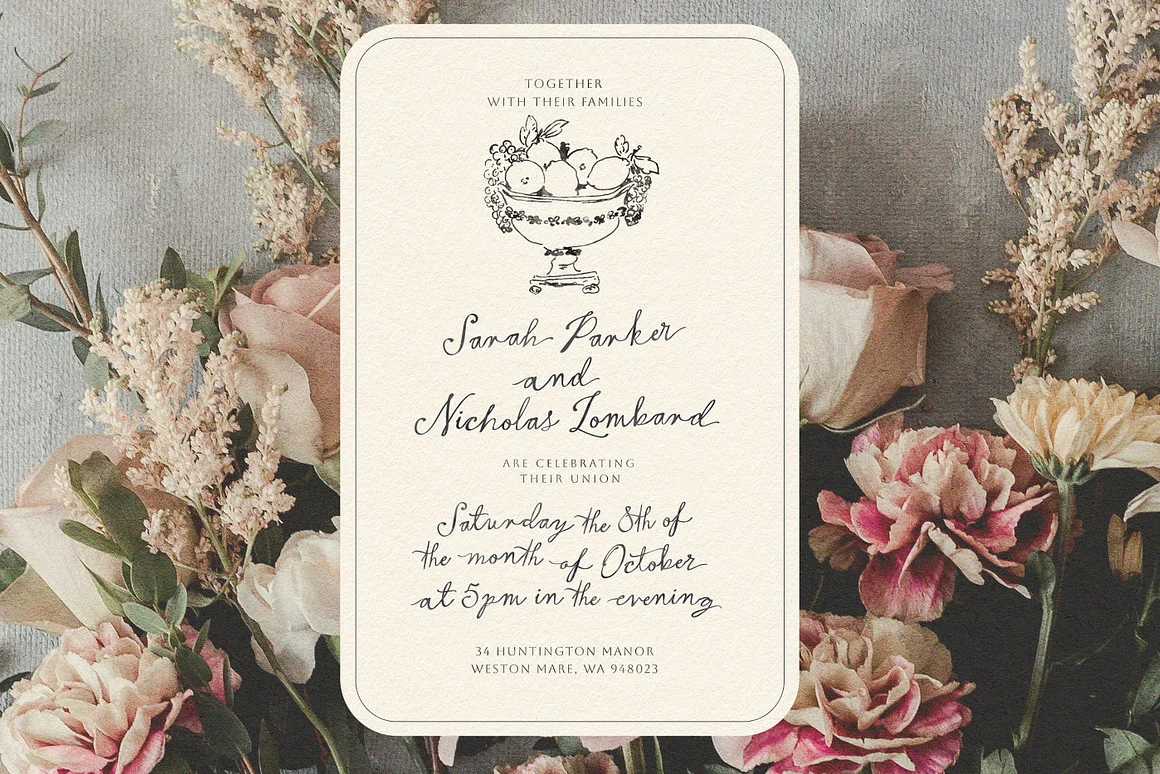 TOGETHER
WITH THEIR FAMILIES
Sarah Parker
and
Nicholas Lombard
ARE CELEBRATING
THEIR UNION
Saturday the 8th of
the month of October
at 5pm in the evening
34 HUNTINGTON MANOR
WESTON MARE, WA 948023